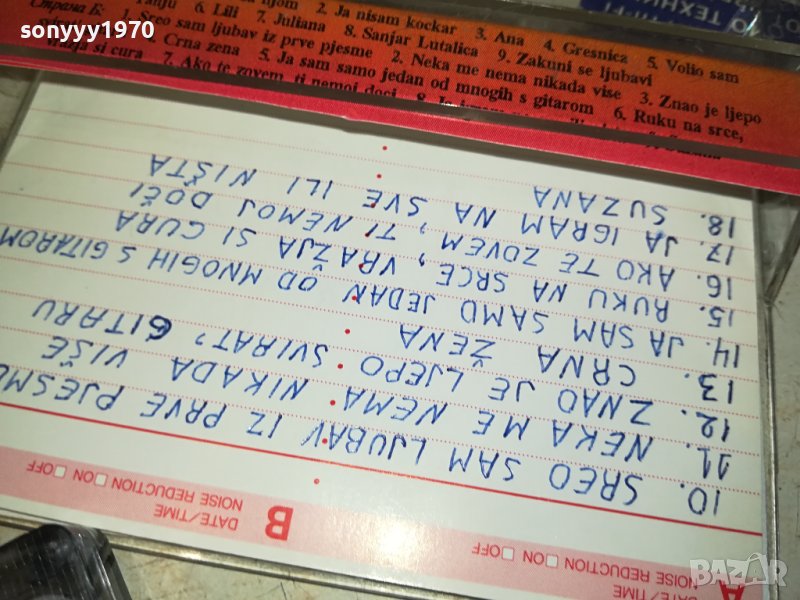 sonyyy1970
О ТЕХНИ
2. Ja nisam kockar 3. Ana 4. Gresnica 5. Volio sam
6. Lili 7. Juliana 8. Sanjar Lutalica 9. Zakuni se ljubavi
Страна Б: 1. Sreo sam ljubav iz prve pjesme 2. Neka me nema nikada vise 3. Znao je ljepo
Crna zena 5. Ja sam samo jedan od mnogih s gitarom 6. Ruku na srce,
si cura 7. Ako te zovem, ti nemoj doci 8.
A
DATE/TIME
NOISE REDUCTION □ ON □ OFF
B
DATE/TIME
NOISE REDUCTION □ ON □ OFF
10. SREO SAM LJUBAV IZ PRVE PJESME
11. NEKA ME NEMA NIKADA VIŠE
12. ZNAO JE LJEPO SVIRAT, GITARU
13. CRNA ŽENA
14. JA SAM SAMO JEDAN OD MNOGIH S GITAROM
15. RUKU NA SRCE, VRAŽJA SI CURA
16. AKO TE ZOVEM, TI NEMOJ DOČI
17. JA IGRAM NA SVE ILI NIŠTA
18. SUZANA
BAZAR